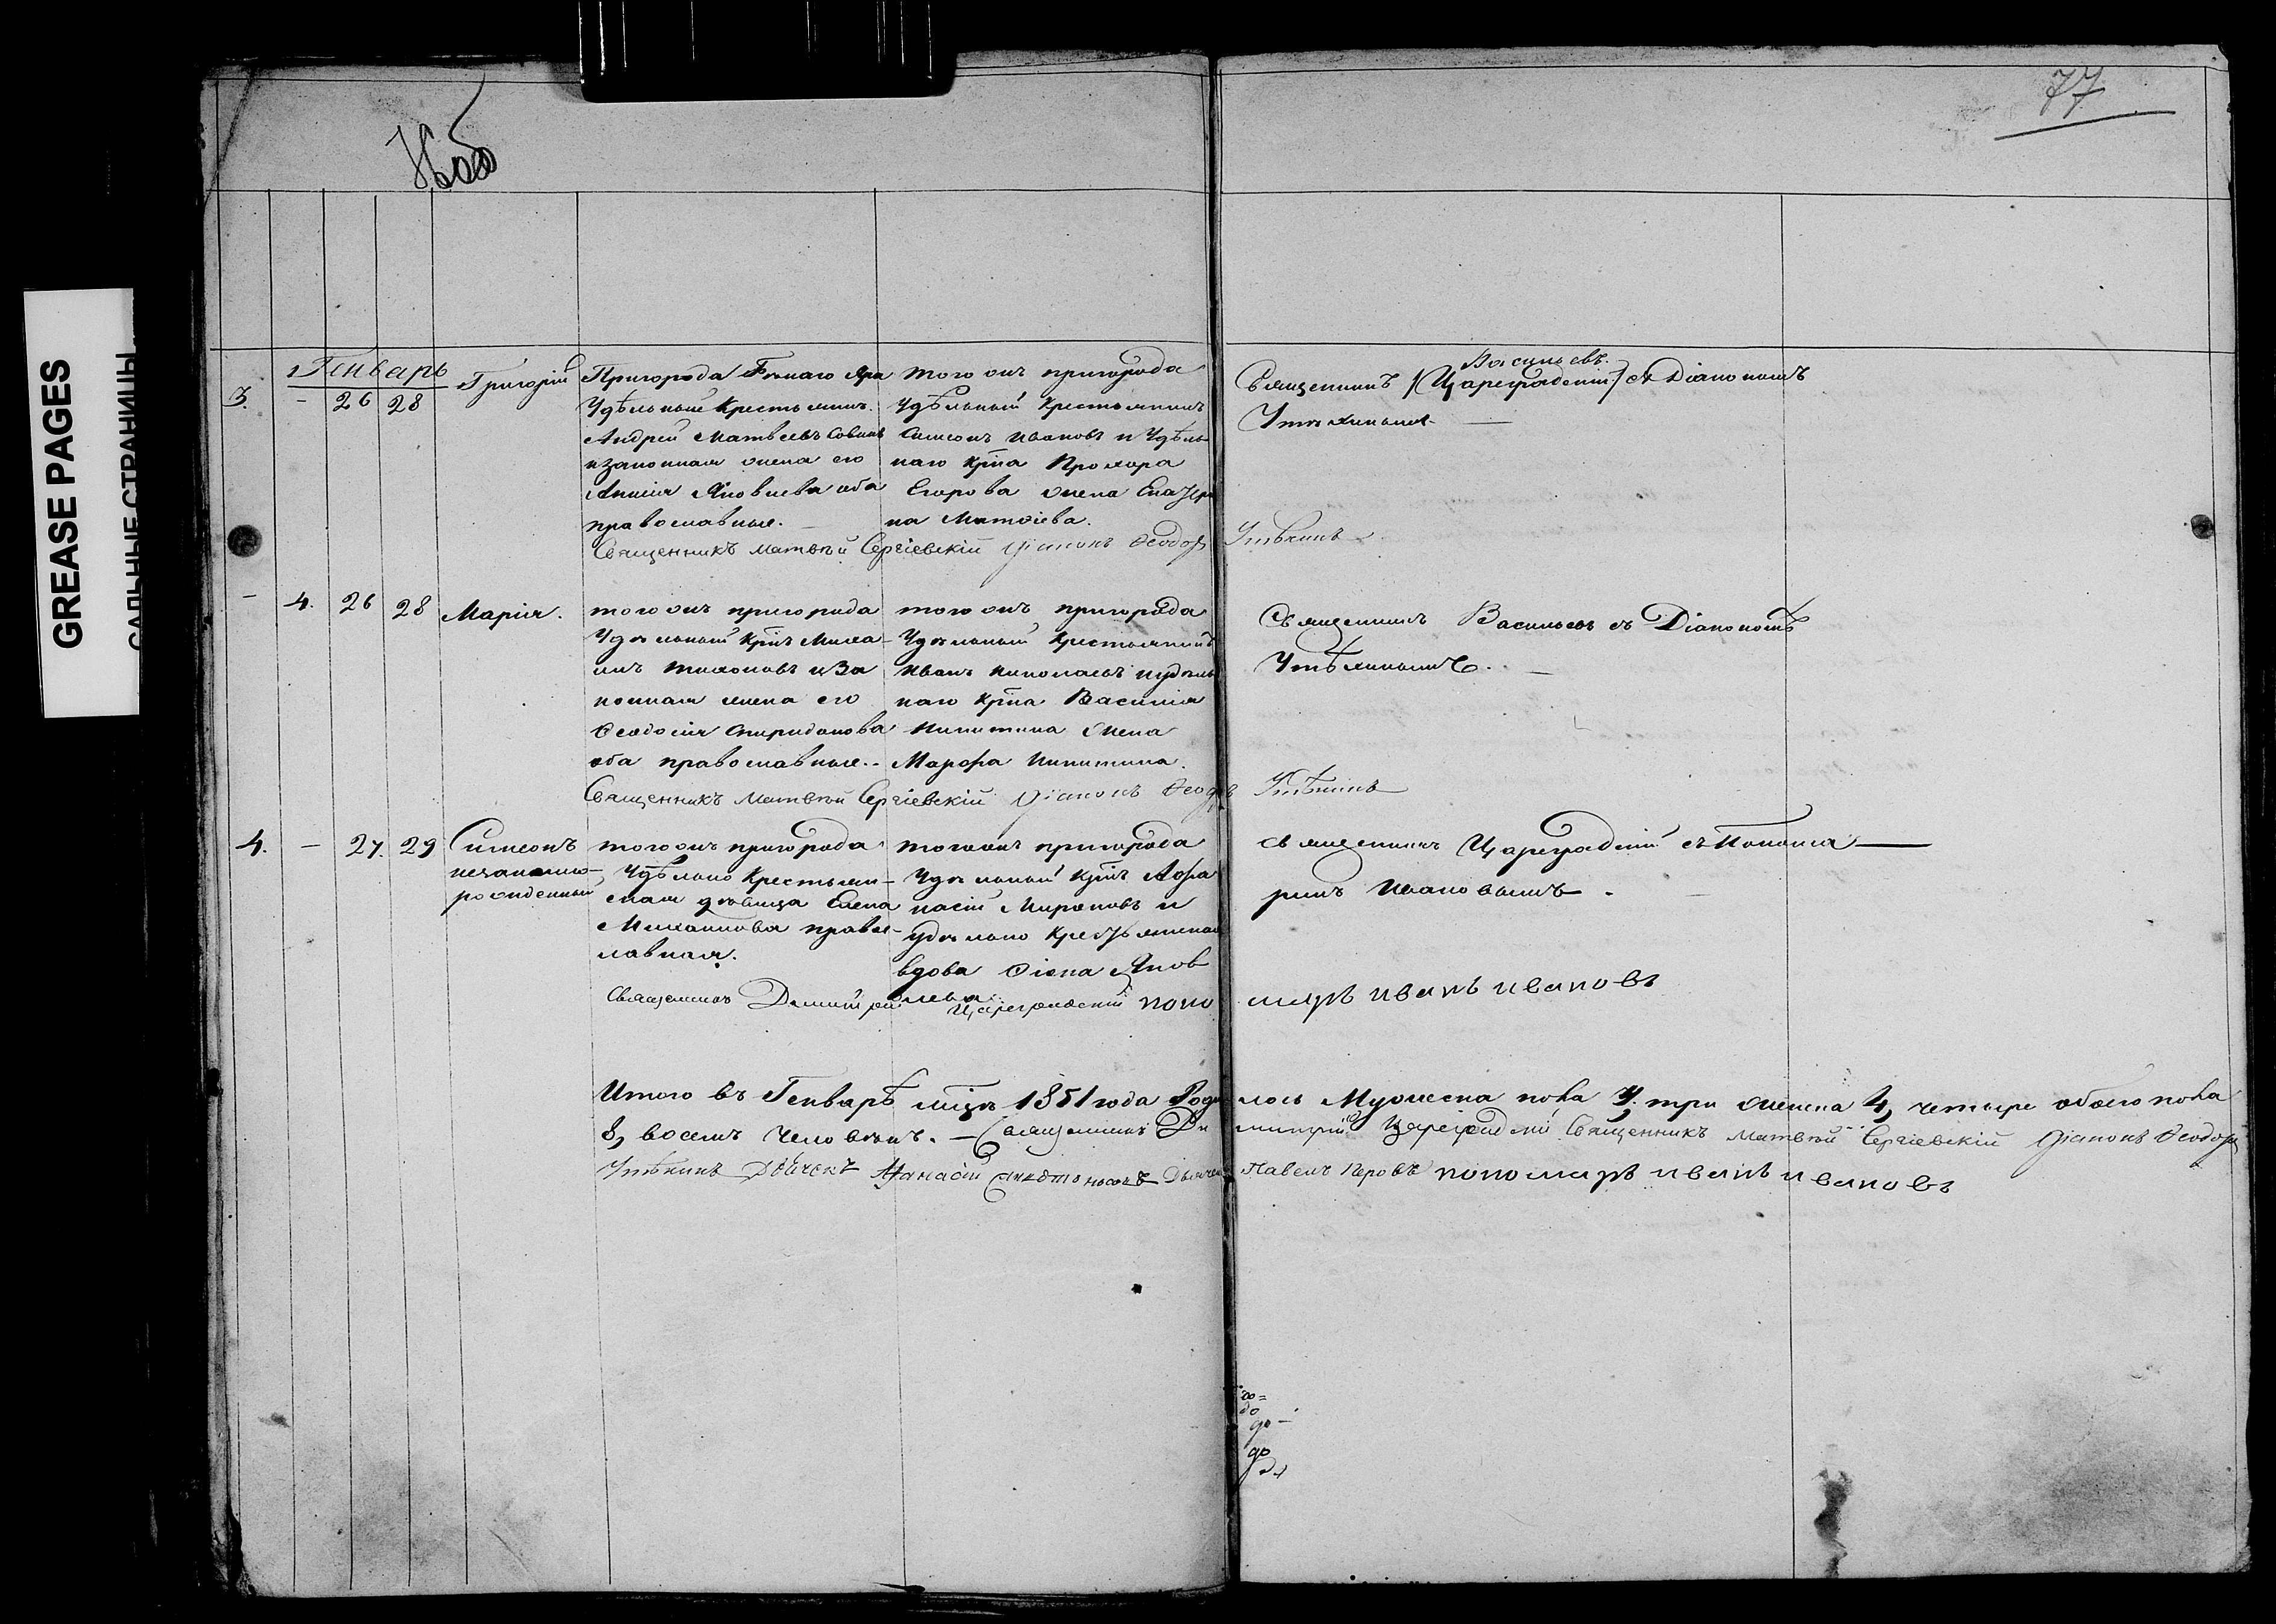 GREASE PAGES
САЛЬНЫЕ СТРАНИЦЫ
77
Генварь
3. - 26 28 Григорій
Пригорода Бѣлаго Яра
Удѣльный крестьянинъ
Андрей Матвѣевъ
и законная жена его
Яковлева оба
православные.
того жъ пригорода
Удѣльный крестьянинъ
Симеонъ Ивановъ и Удѣль
наго кр҃на Прохора
Егорова жена Екатери
на Матвіева.
Васильевъ
Священникъ /Цареградскій/ съ Діакономъ
Утѣхинымъ
Священникъ Матвѣй Сергіевскій Діаконъ Ѳеодоръ Утѣхинъ
- 4. 26 28 Марія.
того жъ пригорода
Удѣльный кр҃нъ Миха
илъ Тихоновъ и За
конная жена его
Ѳеодосія Спиридонова
оба православные.
того жъ пригорода
Удѣльный крестьянинъ
Иванъ Николаевъ и удѣль
наго кр҃на Василія
Никитина жена
Марѳа Никитина.
Священникъ Васильевъ съ Діакономъ
Утѣхинымъ.
Священникъ Матвѣй Сергіевскій Діаконъ Ѳеодоръ Утѣхинъ
4. - 27. 29 Симеонъ
незаконно-
рожденный
того жъ пригорода
Удѣльно крестьян-
ская дѣвица Елена
Михаилова правос-
лавная.
того жъ пригорода
Удѣльный кр҃нъ Аѳа
насій Мироновъ и
удѣльно крестьянская
вдова Яков
лева
священникъ Цареградскій съ Понома
ремъ Ивановымъ.
Священникъ Димитрій Цареградскій пономарь Иванъ Ивановъ
Итого въ Генварѣ м҃цѣ 1851 года Родилось Мужеска пола три женска 4, четыре обоего пола
8, восемь человѣкъ. — Священникъ Димитрій Цареградскій Священникъ Матвѣй Сергіевскій Діаконъ Ѳеодоръ
Утѣхинъ Дьячекъ Аѳанасій Дьячекъ Павелъ Перовъ пономарь Иванъ Ивановъ